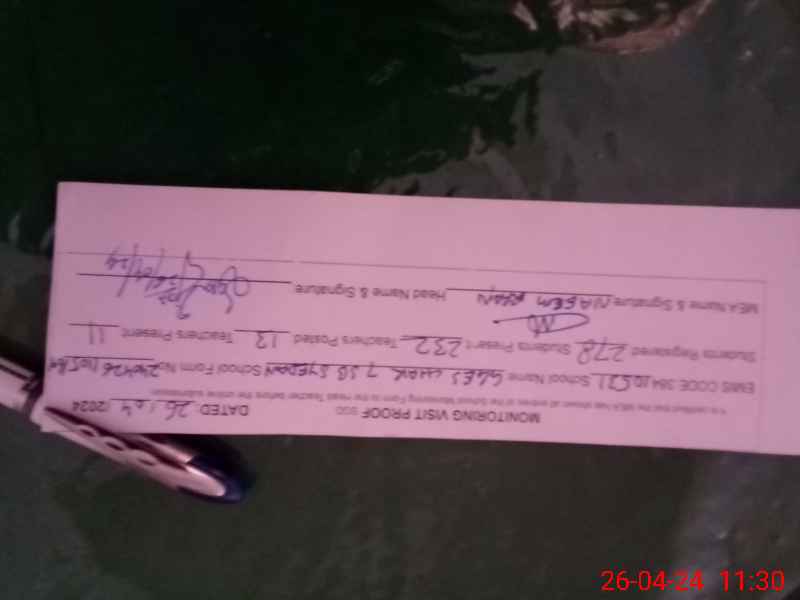 MONITORING VISIT PROOF SGD DATED: 26/04/2024
It is certified that the MEA has shown all entries of the School Monitoring Form to the Head Teacher before the online submission
EMIS CODE 38410521 School Name GGES CHAK 7 SB SYEDAN School Form No
Students Registered 278 Students Present 232 Teachers Posted 13 Teachers Present 11
MEA Name & Signature NAEEM KHAN Head Name & Signature
26-04-24 11:30